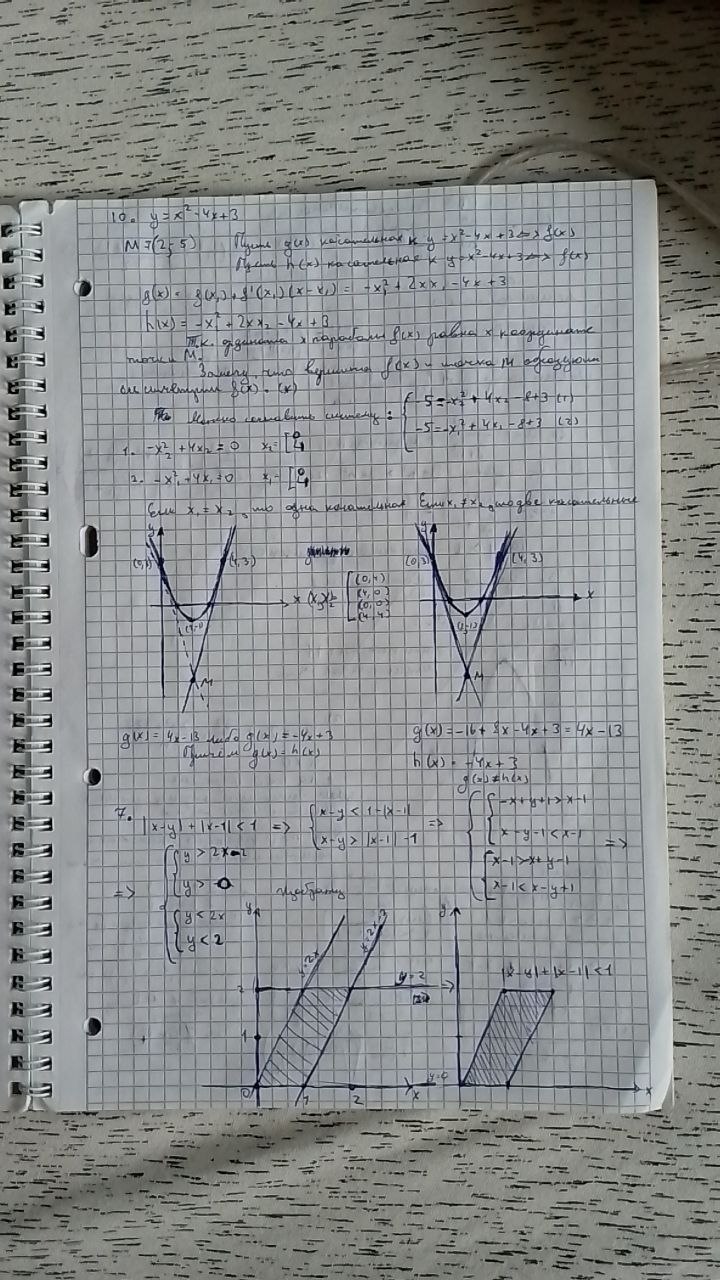 10. y=x²-4x+3
M=(2; 5) Пусть g(x) касательная к y=x²-4x+3 <=> f(x)
Пусть h(x) касательная к y=x²-4x+3 <=> f(x)
g(x) = f(x₁)+f'(x₁)(x-x₁) = -x₁²+2xx₁-4x+3
h(x) = -x₂²+2xx₂-4x+3
Т.к. ордината x параболы f(x) равна x координате
точки M.
Замечу, что вершина f(x) и точка M образуют
симметрии f(x). (x)
Можно составить систему: { -5=-x₂²+4x₂-8+3 (1)
-5=-x₁²+4x₁-8+3 (2)
1. -x₂²+4x₂=0 x₂=[0 4
2. -x₁²+4x₁=0 x₁=[0 4
Если x₁=x₂, то одна касательная Если x₁≠x₂, то две касательные
y y
(4,3) (0,3) (4,3)
x x
(0,4)
(4,0)
(0,0)
(4,4)
(2,-1) (2,-1)
M M
g(x)=4x-13 либо g(x)=-4x+3 g(x)=-16+8x-4x+3=4x-13
Причем g(x)=h(x) h(x)=-4x+3
g(x)≠h(x)
7. |x-y|+|x-1|<1 => { x-y<1-|x-1| => { -x+y+1>x-1
x-y>|x-1|-1 x-y-1<x-1 =>
x-1>x+y-1
x-1<x-y+1
=> { y>2x-2
y>0
y<2x
y<2
Изобразим
y y
y=2x y=2x-2
2 y=2 => |x-y|+|x-1|<1
1
0 1 2 x y=0 x